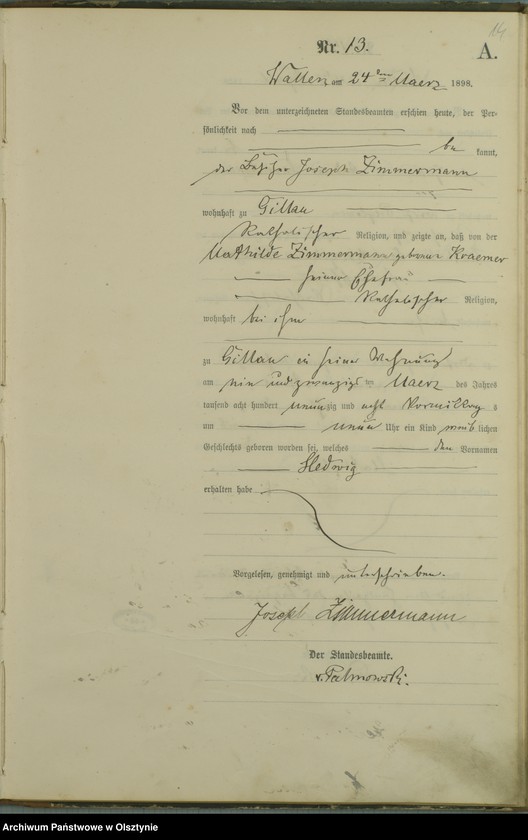 14
Nr. 13.
A.
Wallen am 24ten Maerz 1898.
Vor dem unterzeichneten Standesbeamten erschien heute, der Per-
sönlichkeit nach
be kannt,
der Joseph Zimmermann
wohnhaft zu Gillau
katholischer Religion, und zeigte an, daß von der
Mathilde Zimmermann geborene Kraemer
seiner Ehefrau
katholischer Religion,
wohnhaft bei ihm
zu Gillau in seiner Wohnung
am ein und zwanzigsten Maerz des Jahres
tausend acht hundert neunzig und acht Vormittags
um neun Uhr ein Kind weiblichen
Geschlechts geboren worden sei, welches den Vornamen
Hedwig
erhalten habe
Vorgelesen, genehmigt und unterschrieben.
Joseph Zimmermann
Der Standesbeamte.
v. Palmowski.
Archiwum Państwowe w Olsztynie